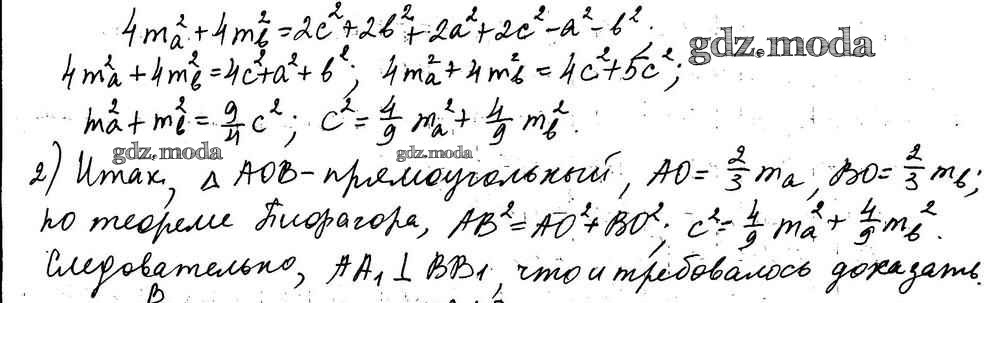 4m²a + 4m²в = 2c² + 2в² + 2a² + 2c² - a² - в².
4m²a + 4m²в = 4c² + a² + в²; 4m²a + 4m²в = 4c² + 5c²;
gdz.moda
m²a + m²в = 9/4 c²; c² = 4/9 m²a + 4/9 m²в.
gdz.moda gdz.moda
2) Итак, △ AOB - прямоугольный, AO = 2/3 ma, BO = 2/3 mв;
по теореме Пифагора, AB² = AO² + BO²; c² = 4/9 m²a + 4/9 m²в.
Следовательно, AA₁ ⊥ BB₁, что и требовалось доказать.
B